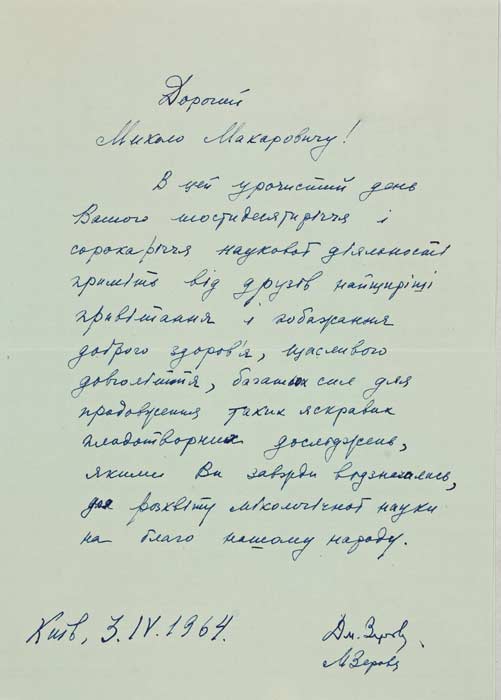 Дорогий
Миколо Макаровичу!
В цей урочистий день
Вашого шостидесятиріччя і
сорокаріччя наукової діяльності
приміть від друзів найщиріші
привітання і побажання
доброго здоров'я, щасливого
довголіття, багатьох сил для
продовження таких яскравих
плодотворних досліджень,
якими Ви завжди відзначались,
для розквіту мікологічної науки
на благо нашому народу.
Київ, 3.IV.1964.
Дм. Зеров
МЗерова